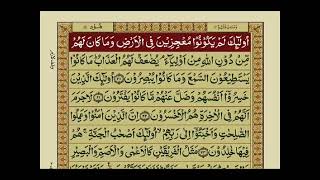 اُولٰٓئِكَ لَمْ يَكُوْنُوْا مُعْجِزِيْنَ فِي الْاَرْضِ وَمَا كَانَ لَهُمْ
مِّنْ دُوْنِ اللّٰهِ مِنْ اَوْلِيَآءَ ۘ يُضٰعَفُ لَهُمُ الْعَذَابُ ؕ مَا كَانُوْا
يَسْتَطِيْعُوْنَ السَّمْعَ وَمَا كَانُوْا يُبْصِرُوْنَ ۝ اُولٰٓئِكَ الَّذِيْنَ
خَسِرُوْۤا اَنْفُسَهُمْ وَضَلَّ عَنْهُمْ مَّا كَانُوْا يَفْتَرُوْنَ ۝ لَا جَرَمَ اَنَّهُمْ
فِي الْاٰخِرَةِ هُمُ الْاَخْسَرُوْنَ ۝ اِنَّ الَّذِيْنَ اٰمَنُوْا وَعَمِلُوا
الصّٰلِحٰتِ وَاَخْبَتُوْۤا اِلٰى رَبِّهِمْ ۙ اُولٰٓئِكَ اَصْحٰبُ الْجَنَّةِ ۚ هُمْ
فِيْهَا خٰلِدُوْنَ ۝ مَثَلُ الْفَرِيْقَيْنِ كَالْاَعْمٰى وَالْاَصَمِّ وَالْبَصِيْرِ